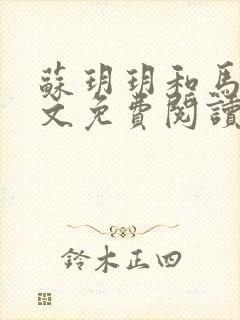 蘇玥玥和馬
文免費閱讀
鈴木正四